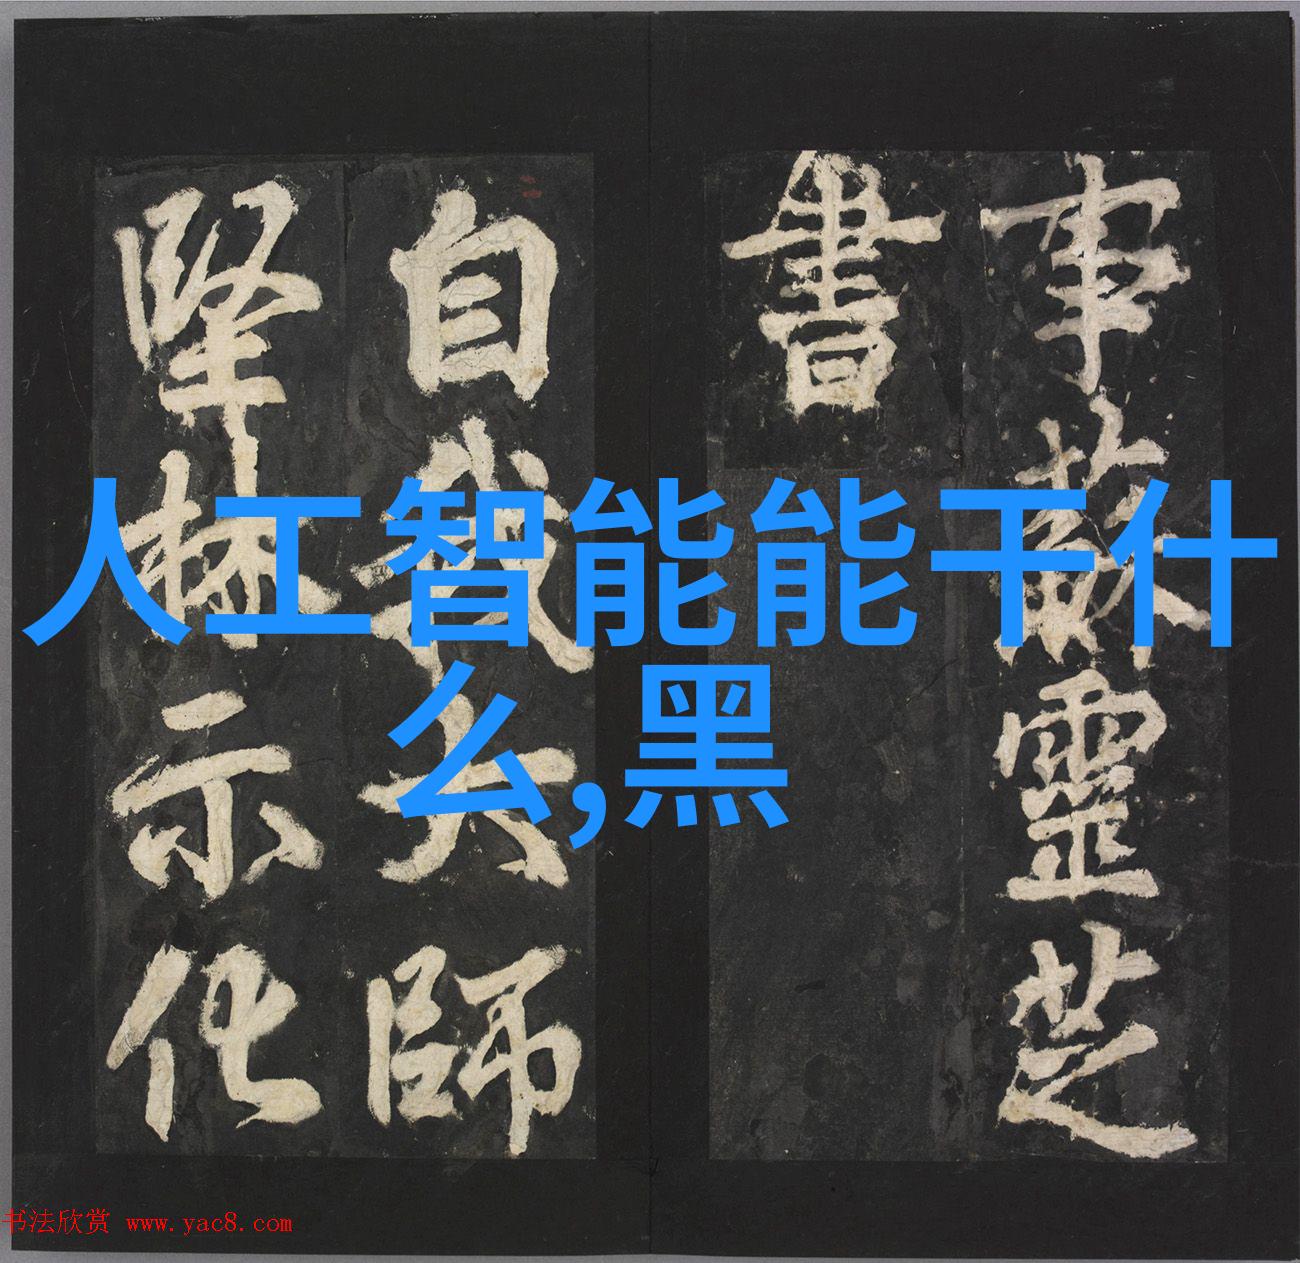 人工智能能干什
么,黑
事蘇靈芝
書
自我大師
堅林示化
书法欣赏 www.yac8.com